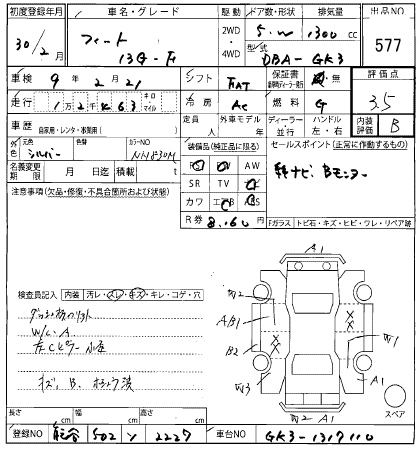 初度登録年月 車名・グレード 駆動 ドア数・形状 排気量 出品NO
30/2月 フィート 2WD 5.W 1300cc 577
13G-F 4WD 型式 DBA-GK3
車検 9年2月21 シフト FAT 保証書 新車時ディーラー発行 有・無 評価点
走行 12463 キロ マイル 冷房 AC 燃料 G 3.5
車歴 自家用・レンタ・事業用( ) 定員 人 外車モデル 年 ディーラー 並行 ハンドル 左・右 内装評価 B
外色 シルバー 元色 カラーNO NH830M 装備品(純正品に限る) セールスポイント(正常に作動するもの)
名義変更期限 月 日迄 積載 t PS PW AW 純ナビ Bモニター
注意事項(欠品・修復・不具合箇所および状態) SR TV 革
カワ エアB ABS
R券 8,160 Fガラス トビ石・キズ・ヒビ・ワレ・リペア跡
A1
検査員記入 内装 汚レ・スレ・キズ・キレ・コゲ・穴
W2
A/B1
W/C.A
B2 W1
W3 A1
キズ、B.
W2 A1
スペア
長さ cm 幅 cm 高さ cm
登録NO 熊谷 502 ソ 2227 車台NO GK3-1317110